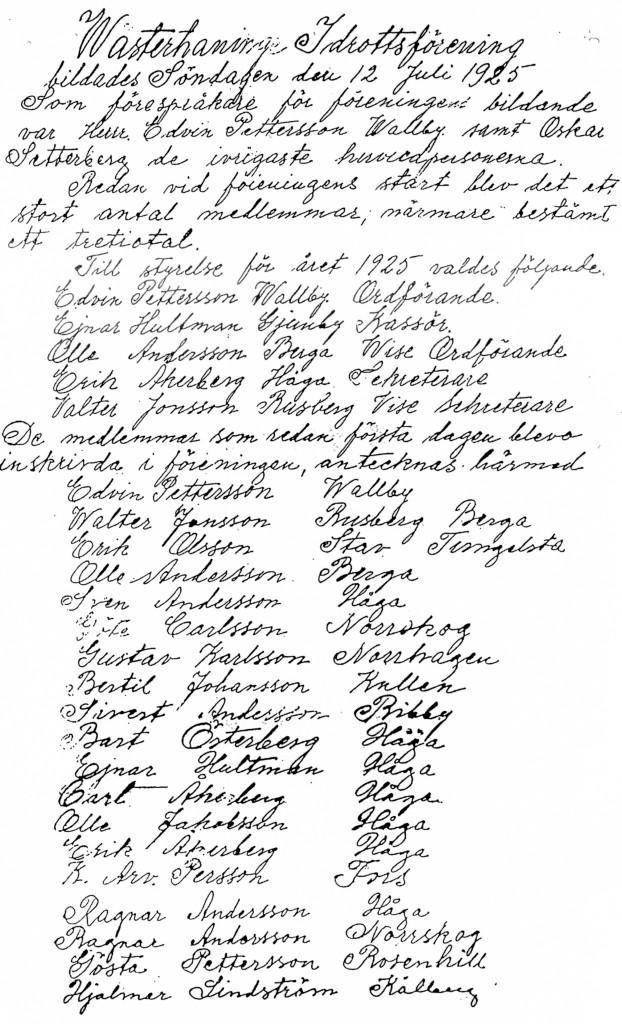 Wästerhaninge Idrottsförening
bildades Söndagen den 12 Juli 1925
Som förespråkare för föreningens bildande
var Herr. Edvin Pettersson Wallby samt Oskar
Setterberg de ivrigaste huvudpersonerna.
Redan vid föreningens start blev det ett
stort antal medlemmar, närmare bestämt
ett tretiotal.
Till styrelse för året 1925 valdes följande.
Edvin Pettersson Wallby Ordförande.
Ejnar Hultman Gjusby Kassör.
Olle Andersson Berga Wise Ordförande
Erik Åkerberg Håga Sekreterare
Valter Jonsson Rusberg Vise Sekreterare
De medlemmar som redan första dagen blevo
inskrivda i föreningen, antecknas härmed
Edvin Pettersson Wallby
Walter Jonsson Rusberg Berga
Erik Olsson Stav Tungelsta
Olle Andersson Berga
Sven Andersson Håga
Göte Carlsson Norrskog
Gustav Karlsson Norrhagen
Bertil Johansson Kullen
Sivert Andersson Ribby
Bart Österberg Håga
Ejnar Hultman Håga
Carl Åkerberg Håga
Olle Jakobsson Håga
Erik Åkerberg Håga
K. Arv. Persson Fors
Ragnar Andersson Håga
Ragnar Andersson Norrskog
Gösta Pettersson Rosenhill
Hjalmar Lindström Kålberg